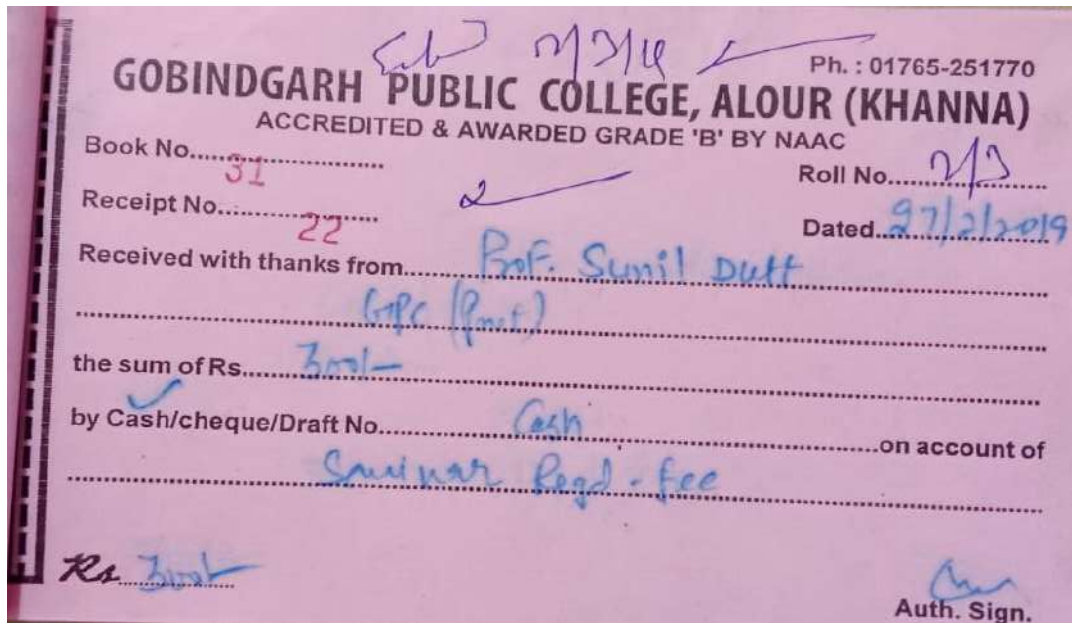 Ph. : 01765-251770
GOBINDGARH PUBLIC COLLEGE, ALOUR (KHANNA)
ACCREDITED & AWARDED GRADE 'B' BY NAAC
Book No. 31
Roll No.
Receipt No. 22
Dated 27/2/2019
Received with thanks from Prof. Sunil Dutt
GPC
the sum of Rs. 300/-
by Cash/cheque/Draft No. Cash on account of
Seminar Regd - fee
Rs 300/-
Auth. Sign.